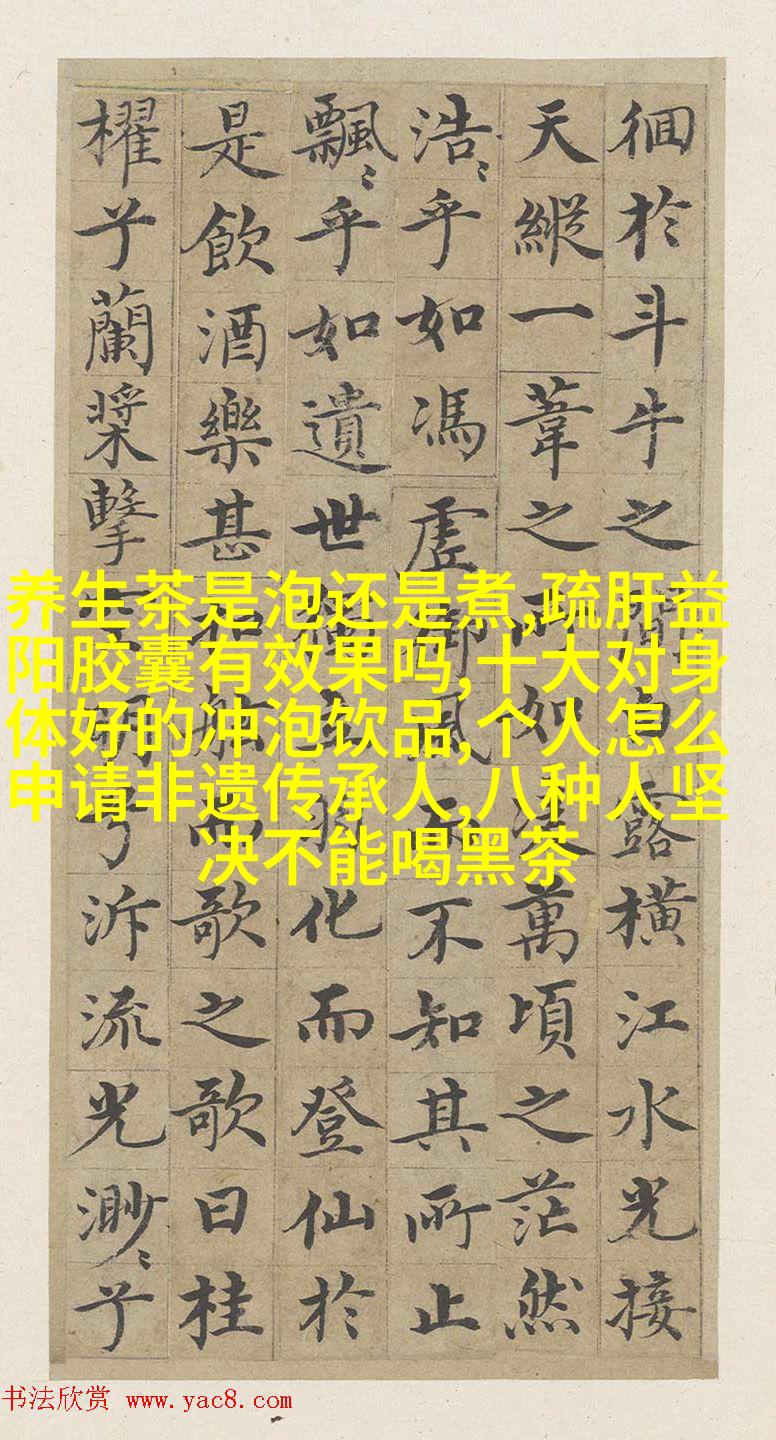 徊於斗牛之間白露橫江水光接
天縱一葦之所如淩萬頃之茫然
浩〻乎如馮虛御風而不知其所止
飄〻乎如遺世獨立羽化而登仙於
是飲酒樂甚扣舷而歌之歌曰桂
櫂兮蘭槳擊空明兮泝流光渺〻兮
养生茶是泡还是煮,疏肝益
阳胶囊有效果吗,十大对身
体好的冲泡饮品,个人怎么
申请非遗传承人,八种人坚
决不能喝黑茶
书法欣赏 www.yac8.com